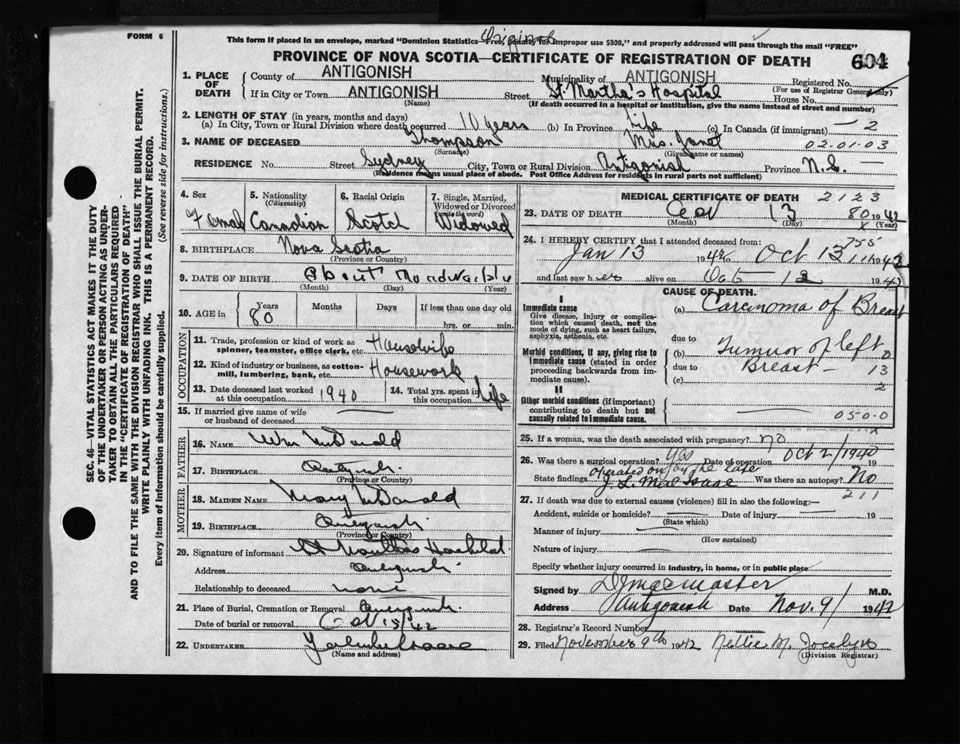 FORM 6
This form if placed in an envelope, marked "Dominion Statistics—Free, penalty for improper use $300," and properly addressed will pass through the mail "FREE"
Original
PROVINCE OF NOVA SCOTIA—CERTIFICATE OF REGISTRATION OF DEATH
604
1. PLACE OF DEATH
County of ANTIGONISH Municipality of ANTIGONISH Registered No.
(For use of Registrar General only)
If in City or Town ANTIGONISH Street St. Martha's Hospital House No.
(Name) (If death occurred in a hospital or institution, give the name instead of street and number)
2. LENGTH OF STAY (in years, months and days)
(a) In City, Town or Rural Division where death occurred 10 years (b) In Province Life (c) In Canada (if immigrant) — 2
3. NAME OF DECEASED Thompson Mrs. Janet 02-01-03
(Surname) (Given name or names)
RESIDENCE No. Street Sydney City, Town or Rural Division Antigonish Province N.S.
(Residence means usual place of abode. Post Office Address for residents in rural parts not sufficient)
SEC. 46—VITAL STATISTICS ACT MAKES IT THE DUTY
OF THE UNDERTAKER OR PERSON ACTING AS UNDER-
TAKER TO OBTAIN ALL THE PARTICULARS REQUIRED
IN THE "CERTIFICATE OF REGISTRATION OF DEATH"
AND TO FILE THE SAME WITH THE DIVISION REGISTRAR WHO SHALL ISSUE THE BURIAL PERMIT.
WRITE PLAINLY WITH UNFADING INK. THIS IS A PERMANENT RECORD.
Every item of Information should be carefully supplied. (See reverse side for instructions.)
4. Sex
Female
5. Nationality
(Citizenship)
Canadian
6. Racial Origin
Scotch
7. Single, Married, Widowed or Divorced
(write the word)
Widowed
8. BIRTHPLACE Nova Scotia
(Province or Country)
9. DATE OF BIRTH
(Month) (Day) (Year)
10. AGE in Years Months Days If less than one day old
80 hrs. or min.
OCCUPATION
11. Trade, profession or kind of work as
spinner, teamster, office clerk, etc. Housewife
12. Kind of industry or business, as cotton-
mill, lumbering, bank, etc. Housework
13. Date deceased last worked
at this occupation 1940
14. Total yrs. spent in
this occupation Life
15. If married give name of wife
or husband of deceased.
FATHER
16. NAME Wm McDonald
17. BIRTHPLACE Antigonish
(Province or Country)
MOTHER
18. MAIDEN NAME Mary McDonald
19. BIRTHPLACE Antigonish
(Province or Country)
20. Signature of informant St Marthas Hospital
Address Antigonish
Relationship to deceased none
21. Place of Burial, Cremation or Removal Antigonish
Date of burial or removal Oct 15/42
22. UNDERTAKER
(Name and address)
MEDICAL CERTIFICATE OF DEATH 2123
23. DATE OF DEATH Oct 13 80 1942
(Month) (Day) (Year)
24. I HEREBY CERTIFY that I attended deceased from: 755
Jan 13 1942 to Oct 13 1942
and last saw her alive on Oct 12 1942
CAUSE OF DEATH
I
Immediate cause
Give disease, injury or complica-
tion which caused death, not the
mode of dying, such as heart failure,
asphyxia, asthenia, etc.
(a) Carcinoma of Breast
due to
Morbid conditions, if any, giving rise to
immediate cause (stated in order
proceeding backwards from im-
mediate cause).
(b) Tumor of left 0
due to Breast — 13
(c) 2
II
Other morbid conditions (if important)
contributing to death but not
causally related to immediate cause.
050-0
25. If a woman, was the death associated with pregnancy? no
26. Was there a surgical operation? Yes Date of operation Oct 2/1940 19
State findings operated on by the late
J. L. MacIsaac Was there an autopsy? No
211
27. If death was due to external causes (violence) fill in also the following:—
Accident, suicide or homicide? Date of injury 19
(State which)
Manner of injury
(How sustained)
Nature of injury
Specify whether injury occurred in industry, in home, or in public place
Signed by D J MacMaster M.D.
Address Antigonish Date Nov. 9/ 1942
28. Registrar's Record Number
29. Filed November 9th 1942 Nellie M. Jocelyn
(Division Registrar)